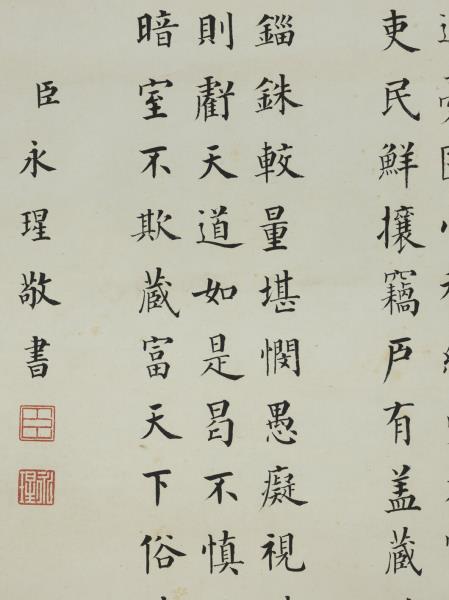 吏民鮮攘竊戶有盖藏
錙銖較量堪憫愚癡視
則虧天道如是曷不慎
暗室不欺藏富天下俗
臣永瑆敬書
臣
永瑆